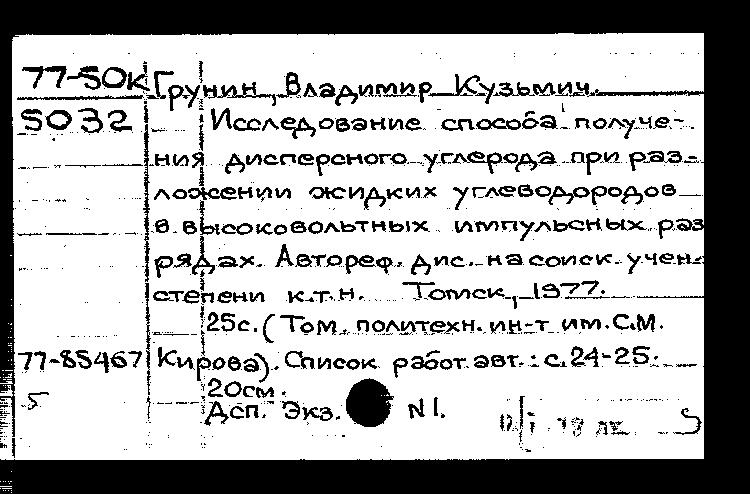 77-50к Грунин, Владимир Кузьмич.
5032 Исследование способа получе-
ния дисперсного углерода при раз-
ложении жидких углеводородов
в высоковольтных импульсных раз
рядах. Автореф. дис. на соиск. учен.
степени к.т.н. Томск, 1977.
25с. (Том. политехн. ин-т им. С.М.
77-85467 Кирова). Список работ авт.: с. 24-25.
20см.
5 Дсп. Экз. N1.